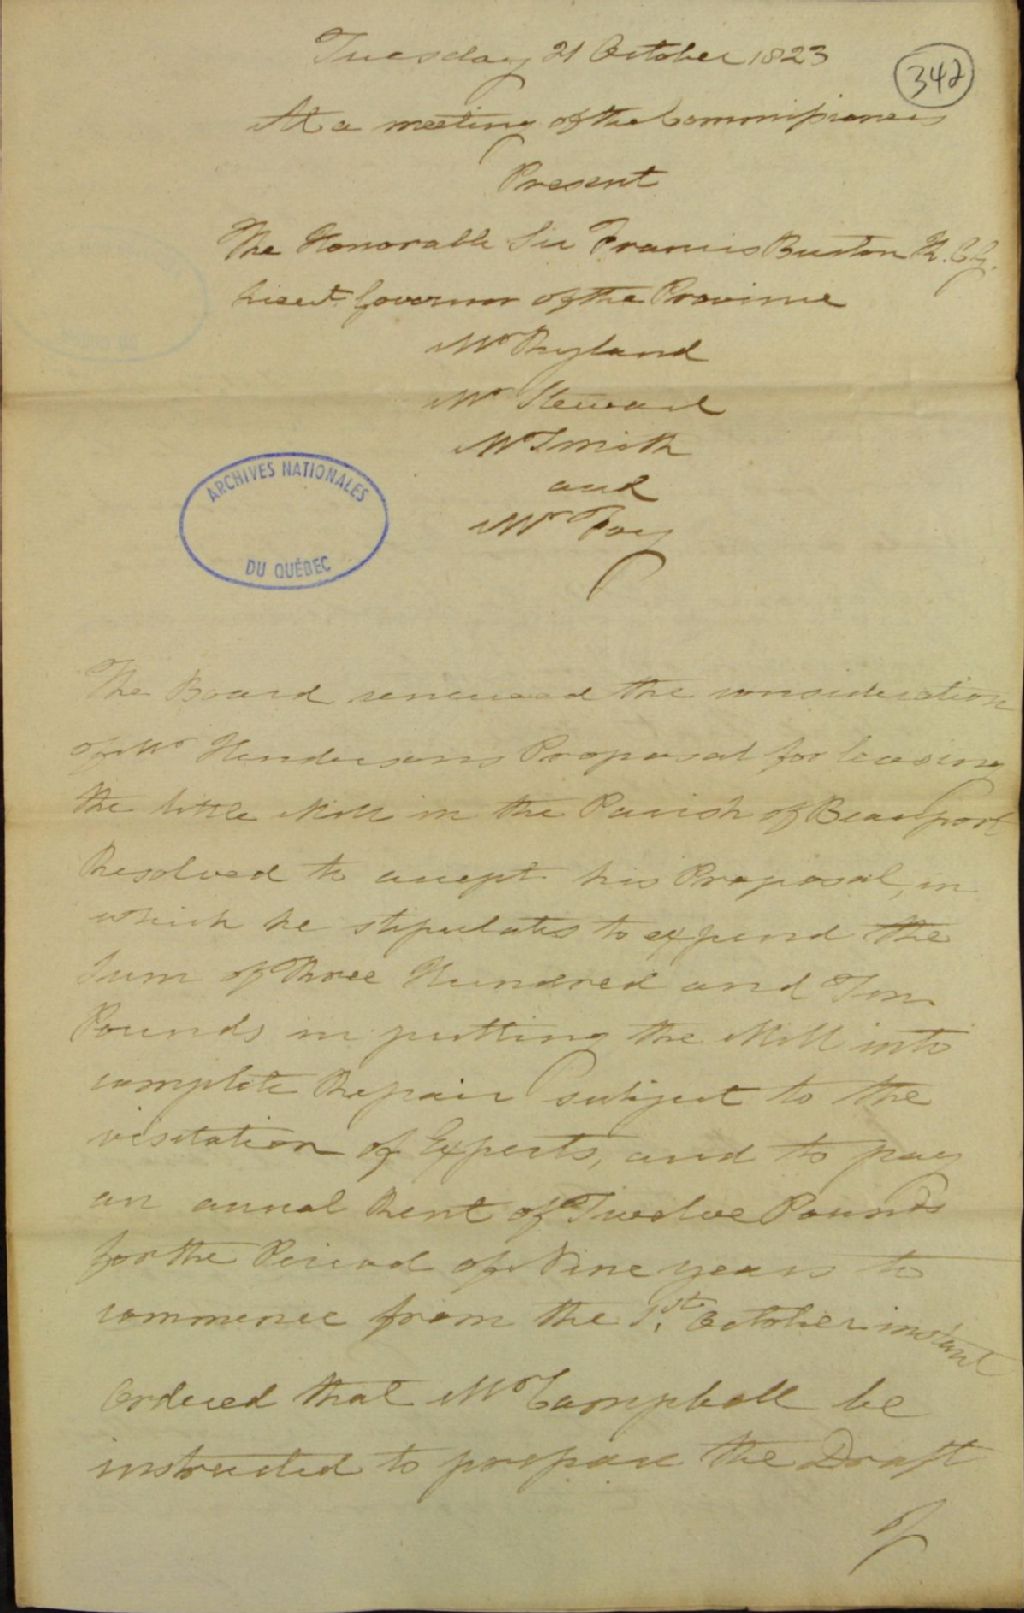 Tuesday 21 October 1823
342
At a meeting of the Commissioners
Present
The Honorable Sir Francis Burton K. C. G.
Lieut. Governor of the Province
Mr Ryland
Mr Steward
Mr Smith
and
Mr Foy
ARCHIVES NATIONALES
DU QUÉBEC
The Board renewed the consideration
of Mr Hendersons Proposal for leasing
the little Mill in the Parish of Beauport
Resolved to accept his Proposal, in
which he stipulates to expend the
Sum of Three Hundred and Ten
Pounds in putting the Mill into
complete Repair subject to the
visitation of Experts, and to pay
an annual Rent of Twelve Pounds
for the Period of Nine years to
commence from the 1st. October instant
Ordered that Mr Campbell be
instructed to prepare the Draft
of